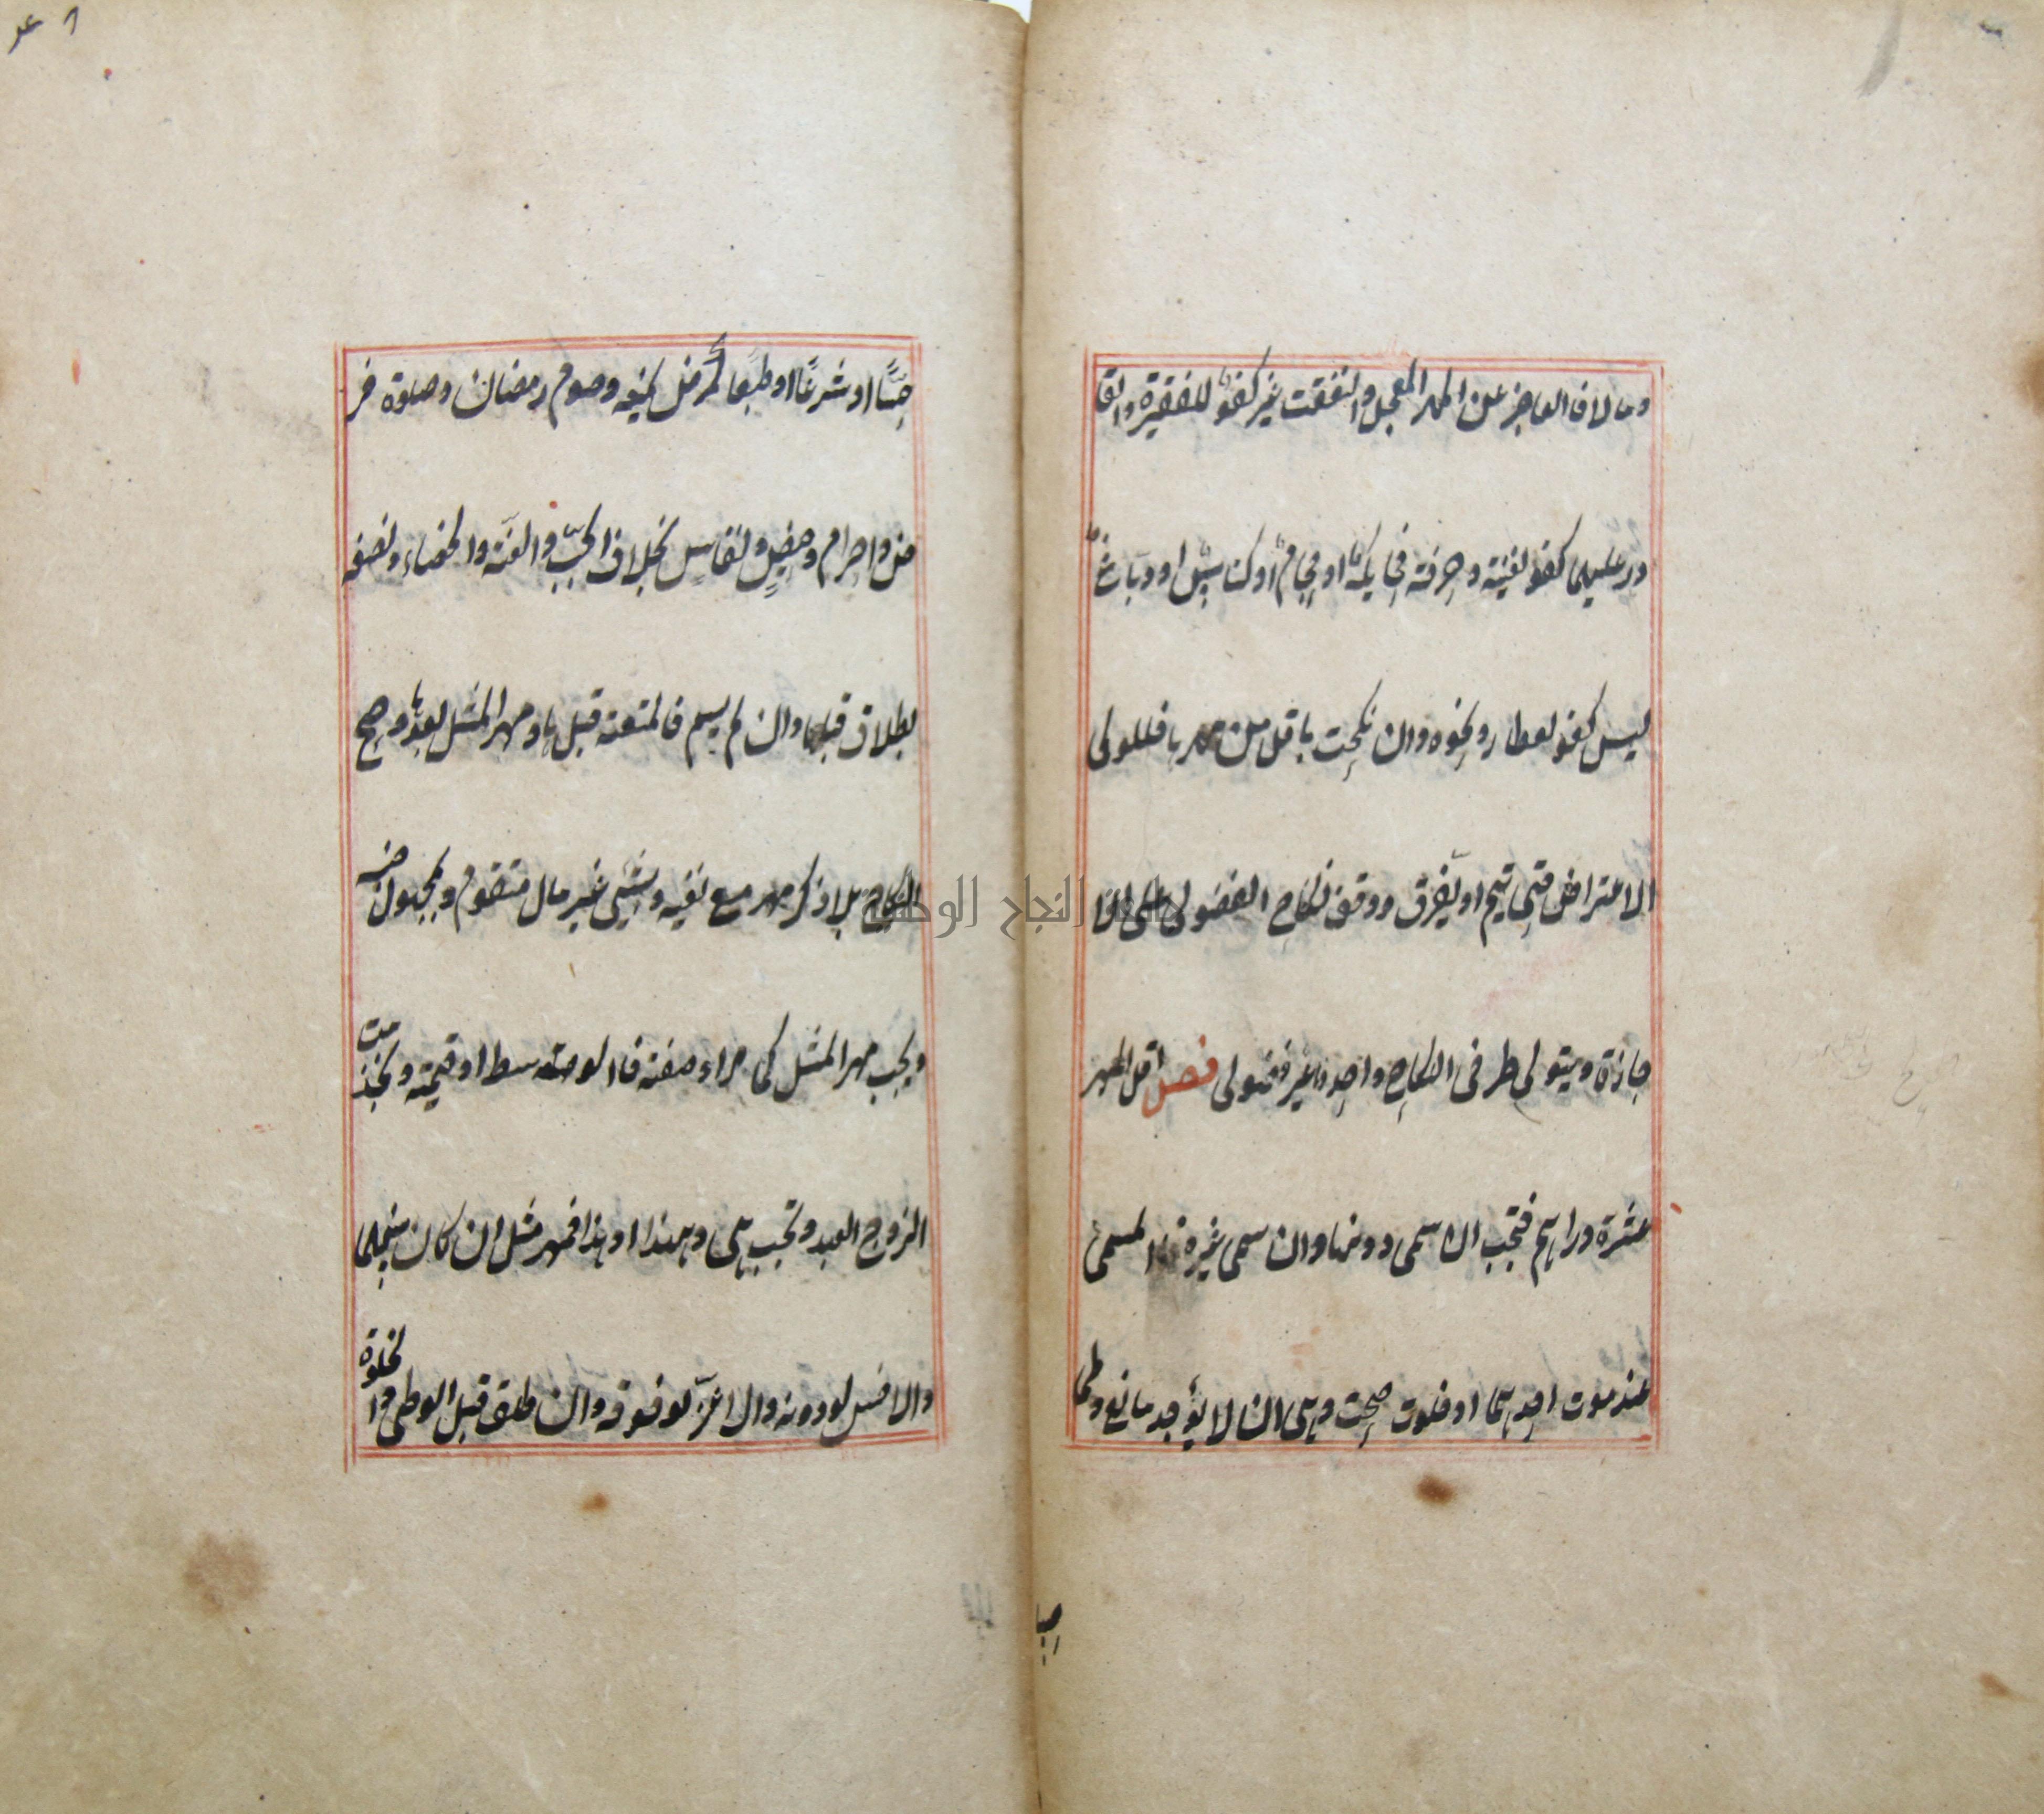 ومالا فالعاجز عن المهر المعجل والنفقت غير كفؤ للفقيرة والقا
در عليهما كفو لغنية وحرفة فحايك او حجام او كناس او دباغ
ليس كفو لعطار ونحوه وان نكحت باقل من مهرها فللولى
الاعتراض حتى تيم او يفرق ووقف نكاح الفضولى على الا
جازة ويتولى طرفى النكاح واحد غير فضولى فصل اقل المهر
عشرة دراهم فتجب ان سمى دونها وان سمى غيره فالمسمى
عند موت احدهما او خلوت صحت وهى ان لا يوجد مانع وطئ
حسا
حسًا او شرعًا او طبعًا كمرض يمنعه وصوم رمضان وصلوة فر
ض واحرام وحيض ونفاس بخلاف الجبّ والعنّة والخصاء ونصفه
بطلاق قبلها وان لم يسم فالمتعة قبلها ومهر المثل بعدها وصح
النكاح بلا ذكر مهر مع نفيه وبشئ غير مال متقوم وبمجهول جنسه
ويجب مهر المثل كما مر او صفته فالوسط او قيمته وبخدمت
الزوج العبد وتجب هى وبهذا او بهذا فمهر مثل ان كان بينهما
والاخس لو دونه والاعزّ لو فوقه وان طلق قبل الوطى والخلوة
جامعة النجاح الوطنية